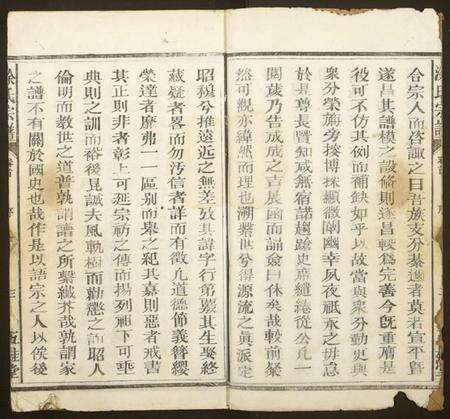 合宗人而咨諏之曰吾族支分綦遠者莫若宣平暨
遂昌其譜模之設條則遂昌較為完善今旣重廟是
役可不仿其例而補缺如乎以故當與眾分勷更與
眾分榮旃旁搜博採顯微闡幽幸夙夜祇承之毋怠
於是尊長暨知咸無宿諾趨蹌史席纏綣從公凡一
閱葳乃告成成之吉展函而誦僉曰休矣哉較前粲
然可觀亦緯然而理也溯繫世兮得源流之眞派定
昭穆兮推遠近之無差攷其諱字行第纂其生娶終
葳疑者畧而勿汚信者詳而有徵凡道德節義簪纓
榮達者靡弗一一區别而彙之紀其嘉則惡者戒書
其正則非者彰上可延宗祊之傳而揚列祖下可垂
典則之訓而裕後昆誠夫風軌樹而勸懲之
昭人
倫明而教世之道普孰謂譜之所繫纖芥哉孰謂家
之譜不有關於國史也哉作是以語宗之人以俟後
涂氏宗譜
卷首
序
五桂堂